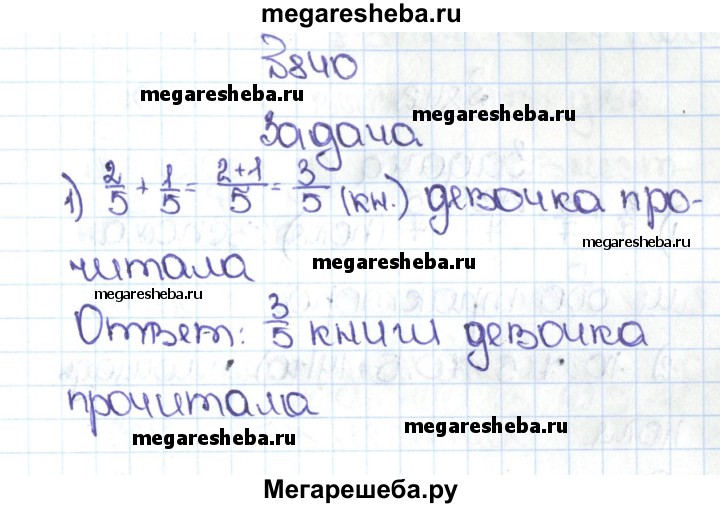 megaresheba.ru
№840
megaresheba.ru
megaresheba.ru
Задача
1) 2/5 + 1/5 = 2+1/5 = 3/5 (кн.) девочка про-
megaresheba.ru
читала
megaresheba.ru
megaresheba.ru
Ответ: 3/5 книги девочка
прочитала
megaresheba.ru
megaresheba.ru
Мегарешеба.ру